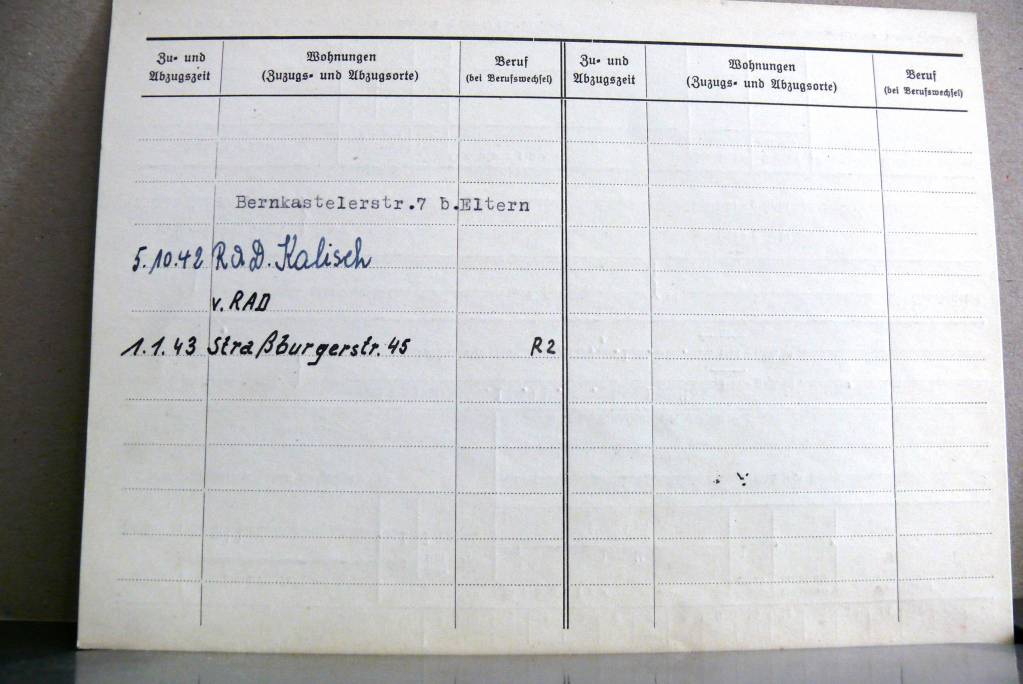 Zu- und Abzugszeit
Wohnungen
(Zuzugs- und Abzugsorte)
Beruf
(bei Berufswechsel)
Zu- und Abzugszeit
Wohnungen
(Zuzugs- und Abzugsorte)
Beruf
(bei Berufswechsel)
Bernkastelerstr.7 b.Eltern
5.10.42 RAD. Kalisch
v. RAD
1.1.43 Straßburgerstr. 45 R2